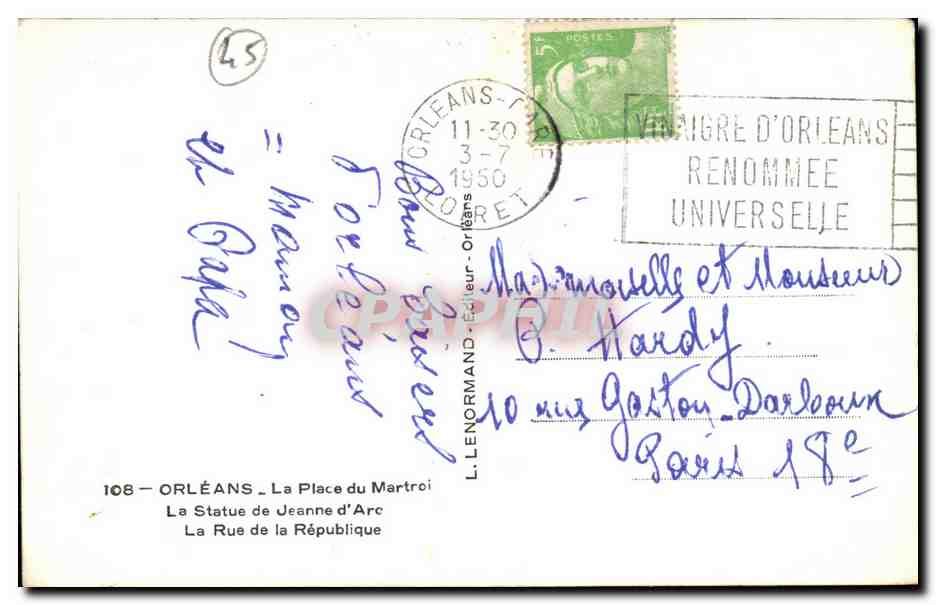 45
POSTES
5F
ORLEANS-GARE
11-30
3-7
1950
LOIRET
VINAIGRE D'ORLEANS
RENOMMEE
UNIVERSELLE
Bons Baisers
d'orléans
= Maman
et Papa
L. LENORMAND - Éditeur - Orléans
Mademoiselle et Monsieur
O. Hardy.
10 rue Gaston-Darboux
Paris 18e
CPAPHIL
108 — ORLÉANS - La Place du Martroi
La Statue de Jeanne d'Arc
La Rue de la République